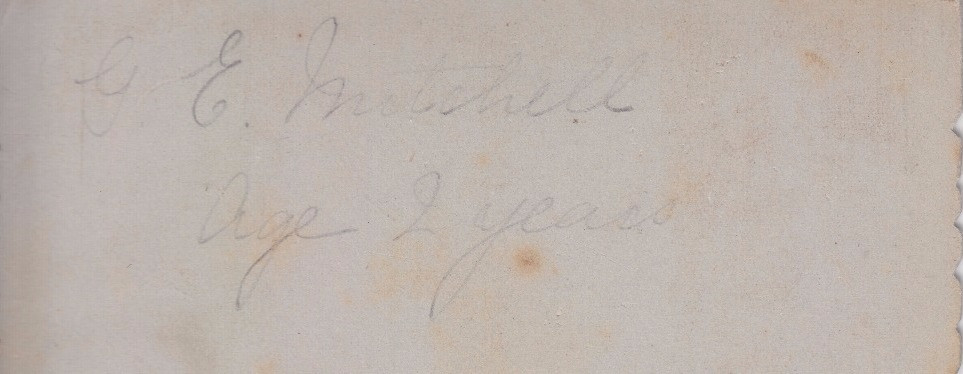 G. E. Mitchell
Age 2 years